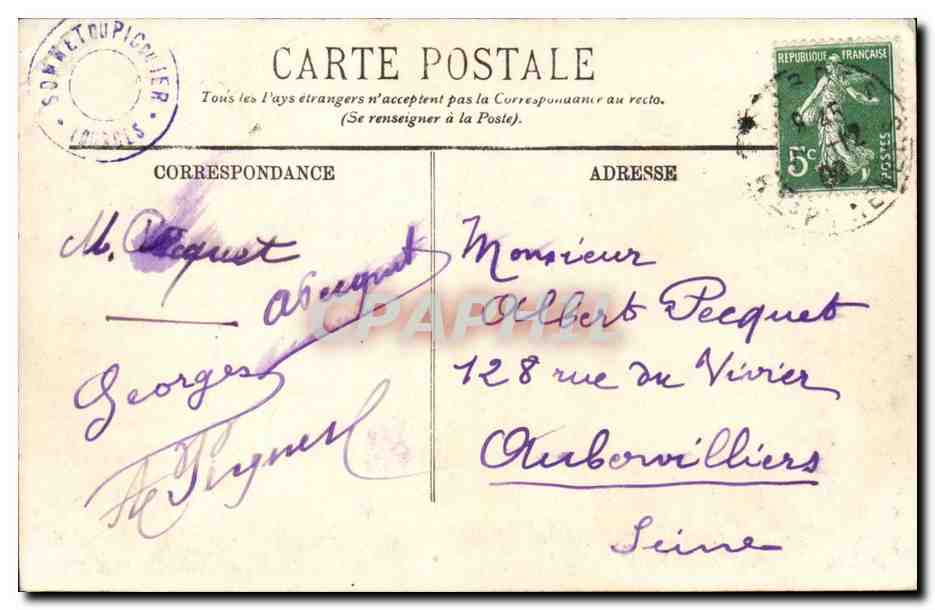 SOMMET DU PIC DU JER
LOURDES
CARTE POSTALE
Tous les Pays étrangers n'acceptent pas la Correspondance au recto.
(Se renseigner à la Poste).
REPUBLIQUE FRANÇAISE
5c
POSTES
CORRESPONDANCE
M. Pecquet
APecquet
Georges
ADRESSE
Monsieur
Albert Pecquet
128 rue du Vivier
Aubervilliers
Seine
CPAPHIL